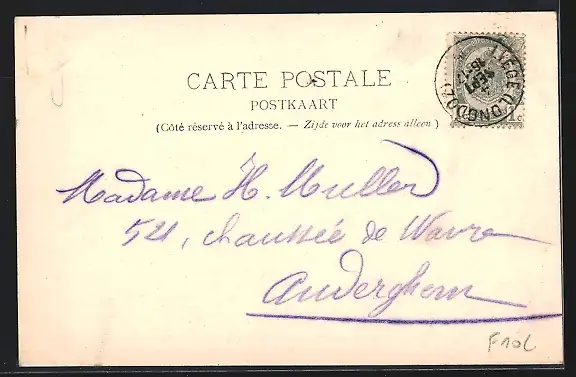 CARTE POSTALE
POSTKAART
(Côté réservé à l'adresse. — Zijde voor het adress alleen.)
LIEGE (LONGDOZ)
1c
Madame H. Muller
54, chaussée de Wavre
Auderghem
F10L